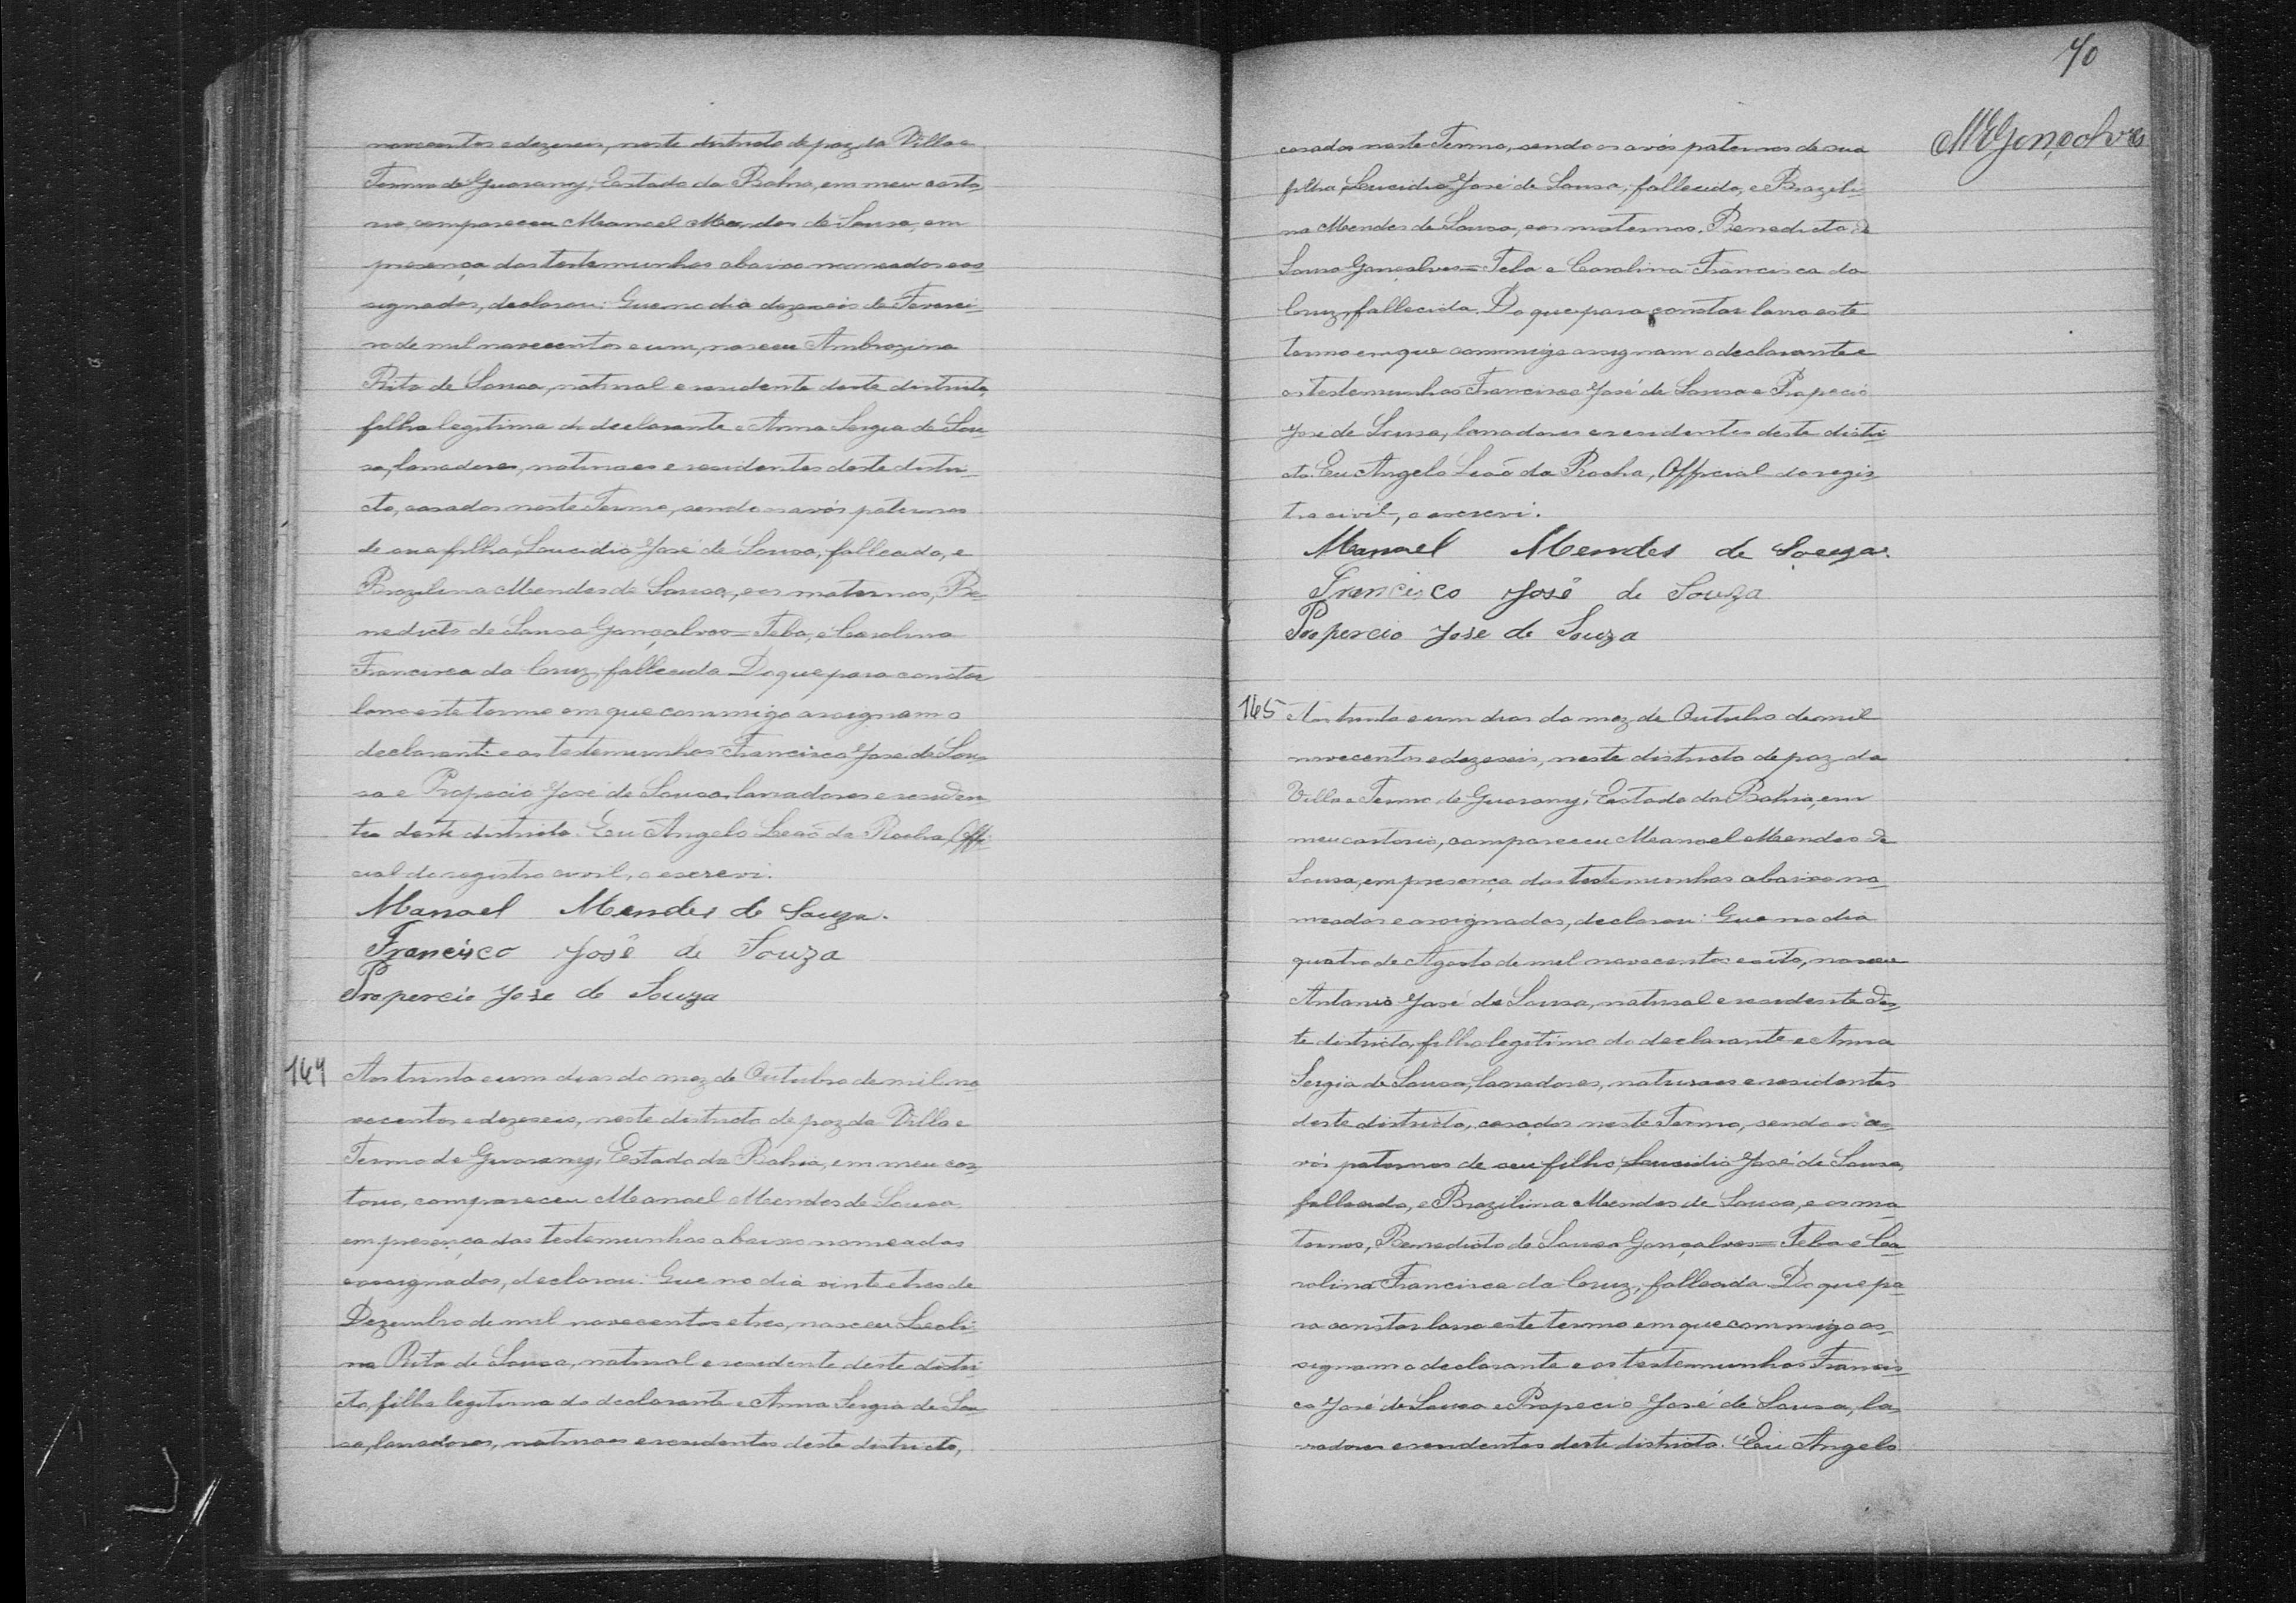 novecentos e dezeseis, neste districto de paz da Villa e
Termo de Guarany, Estado da Bahia, em meu carto-
rio, compareceu Manoel Mendes de Sousa, em
presença das testemunhas abaixo nomeadas e as-
signadas, declarou: Que no dia dezeseis de Feverei-
ro de mil novecentos e um, nasceu Ambrozina
Rita de Sousa, natural e residente deste districto,
filha legitima do declarante e Anna Sergia de Sou-
sa, lavradores, naturaes e residentes deste distri-
cto, casados neste Termo, sendo os avós paternos
de sua filha, Leucidio José de Sousa, fallecido, e
Brazilina Mendes de Sousa, e os maternos, Be-
nedicto de Sousa Gonçalves = Teba, e Carolina
Francisca da Cruz, fallecida. Do que para constar
lavro este termo em que commigo assignam o
declarante e as testemunhas Francisco José de Sou-
sa e Propecio José de Sousa, lavradores e residen-
tes deste districto. Eu Angelo Leão da Rocha, Offi-
cial do registro civil, o escrevi.
Manoel Mendes de Souza.
Francisco José de Souza
Propercio Jose de Souza
144 Aos trinta e um dias do mez de Outubro de mil no-
vecentos e dezeseis, neste districto de paz da Villa e
Termo de Guarany, Estado da Bahia, em meu car-
torio, compareceu Manoel Mendes de Sousa,
em presença das testemunhas abaixo nomeadas
e assignadas, declarou: Que no dia vinte e tres de
Dezembro de mil novecentos e tres, nasceu Leoli-
na Rita de Sousa, natural e residente deste distri-
cto, filha legitima do declarante e Anna Sergia de Sou-
sa, lavradores, naturaes e residentes deste districto,
70
MEGonçalves
casados neste Termo, sendo os avós paternos de sua
filha, Leucidio José de Sousa, fallecido, e Brazili-
na Mendes de Sousa, e os maternos, Benedicto de
Sousa Gonçalves = Teba e Carolina Francisca da
Cruz, fallecida. Do que para constar lavro este
termo em que commigo assignam o declarante e
as testemunhas Francisco José de Sousa e Propecio
José de Sousa, lavradores e residentes deste distri-
cto. Eu Angelo Leão da Rocha, Official do regis-
tro civil, o escrevi.
Manoel Mendes de Souza.
Francisco José de Souza
Propercio Jose de Souza
145 Aos trinta e um dias do mez de Outubro de mil
novecentos e dezeseis, neste districto de paz da
Villa e Termo de Guarany, Estado da Bahia, em
meu cartorio, compareceu Manoel Mendes de
Sousa, em presença das testemunhas abaixo no-
meadas e assignadas, declarou: Que no dia
quatro de Agosto de mil novecentos e oito, nasceu
Antonio José de Sousa, natural e residente des-
te districto, filho legitimo do declarante e Anna
Sergia de Sousa, lavradores, naturaes e residentes
deste districto, casados neste Termo, sendo os a-
vós paternos de seu filho, Leucidio José de Sousa,
fallecido, e Brazilina Mendes de Sousa, e os ma-
ternos, Benedicto de Sousa Gonçalves = Teba e Ca-
rolina Francisca da Cruz, fallecida. Do que pa-
ra constar lavro este termo em que commigo as-
signam o declarante e as testemunhas Francis-
co José de Sousa e Propecio José de Sousa, la-
vradores e residentes deste districto. Eu Angelo